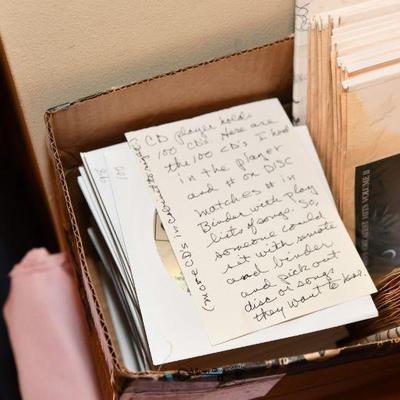 CD player holds
100 CD's. Here are
the 100 CD's I had
in the player
and # on DISC
matches # in
Binder with play
lists of songs. So,
someone could
sit with remote
and binder
and pick out
disc or songs
they want to hear.
(more CD's in
GREATEST HITS VOLUME II